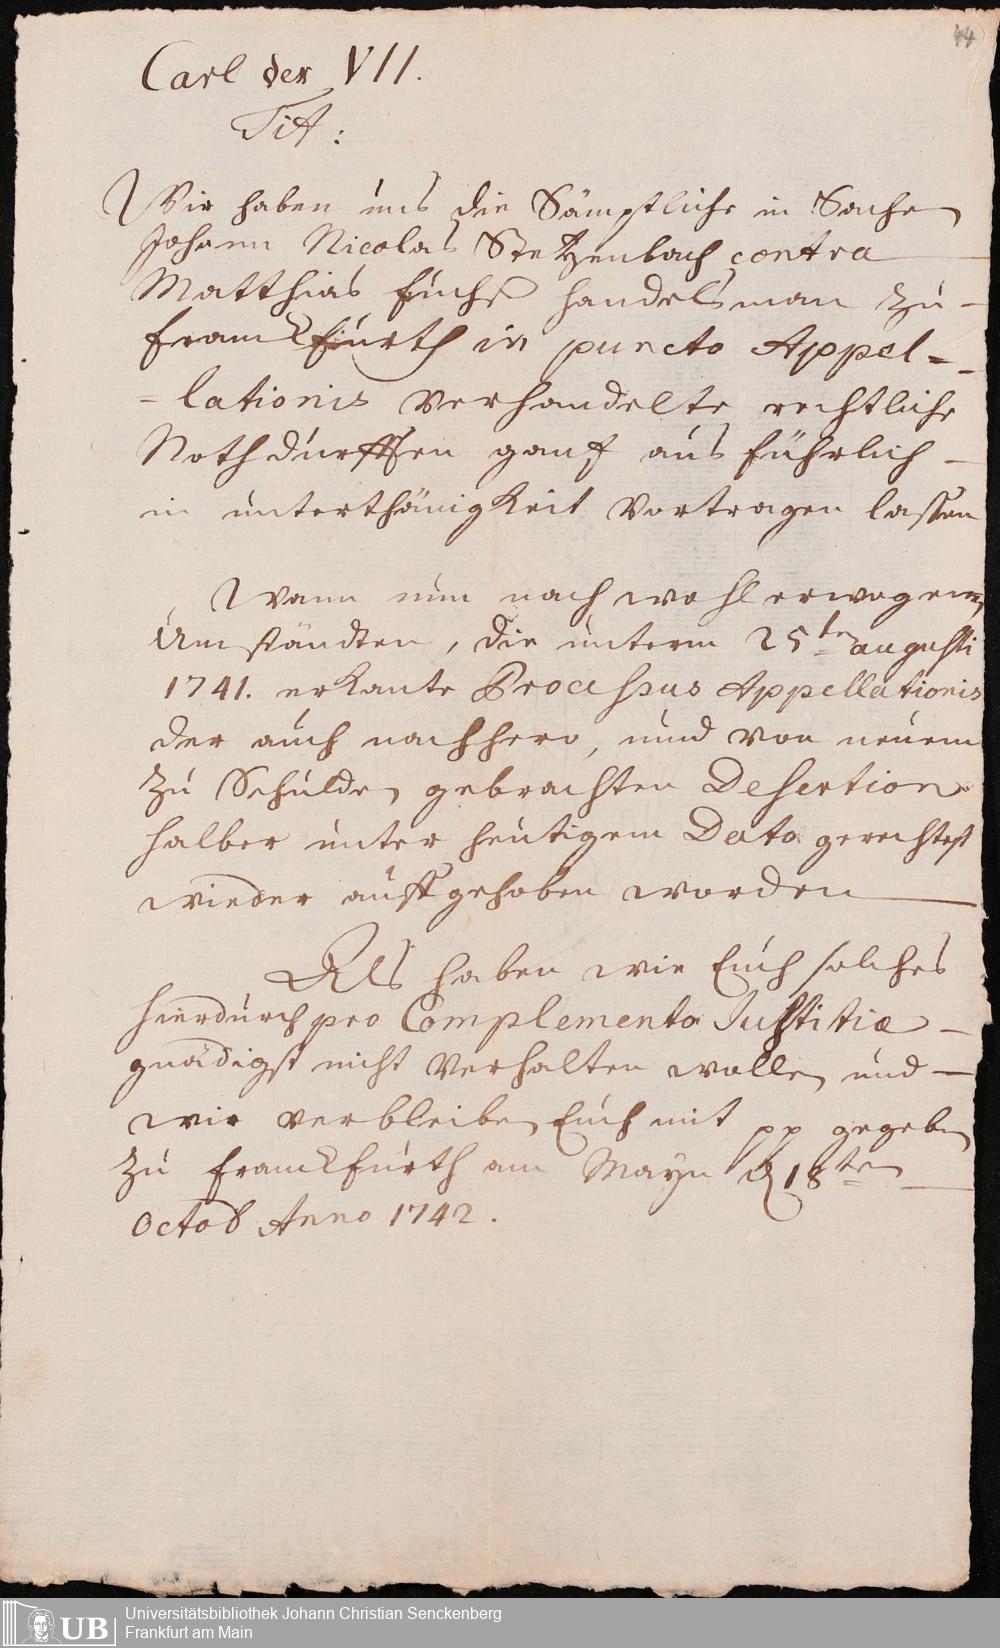 44
Carl der VII.
Tit:
Wir haben uns die Sämptliche in Sachen
Johann Nicolas Stetzenbach contra
Matthias Fuchs handelsman zu –
Franckfurth in puncto Appel=
=lationis verhandelte rechtliche
Nothdurfften gantz ausführlich –
in unterthänigkeit vortragen lassen
Wann nun nach wohl erwogenen
Umständten, die unterm 25ten augusti
1741. erkante Processus Appellationis
der auch nachhero, und von neuem
zu Schulden gebrachten Desertion
halber unter heutigem Dato gerechtest
wieder auffgehoben worden
Als haben wir Euch solches
hierdurch pro Complemento Justitiæ –
gnädigst nicht verhalten wollen und –
wir verbleiben Euch mit pp gegeben
zu Franckfurth am Mayn d 18ten
Octob Anno 1742.
UB
Universitätsbibliothek Johann Christian Senckenberg
Frankfurt am Main